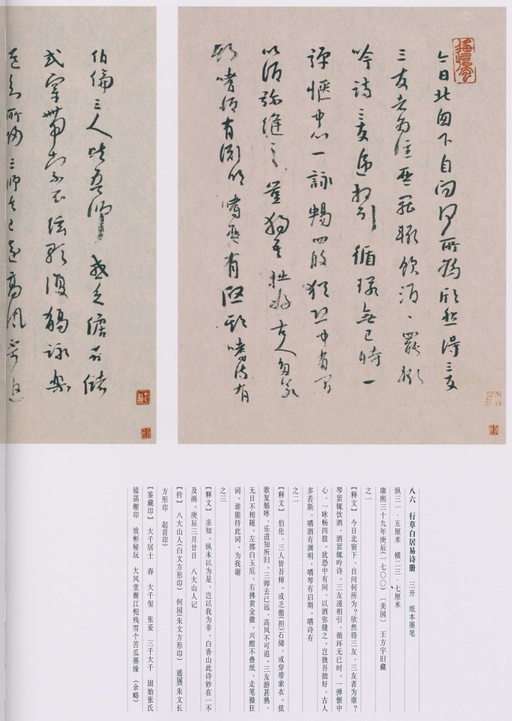 今日北窗下自問何所為欣然得三友
三友者為誰琴罷輒飲酒酒罷輒
吟詩三友遞相引循環無已時一
彈愜中心一詠暢四肢猶恐中有間
以酒彌縫之豈獨吾拙好古人多若
斯嗜酒有淵明嗜琴有啟期嗜詩有
伯倫三人皆吾師或乏儋石儲
或穿帶索衣弦歌復觴詠樂
道知所歸三師去已遠高風不可追
八六 行草白居易诗册 三开 纸本墨笔
纵三一·五厘米 横二三·七厘米
康熙三十九年庚辰(一七〇〇) 〔美国〕 王方宇旧藏
之一
【释文】 今日北窗下，自问何所为？欣然得三友，三友者为谁？
琴罢辄饮酒，酒罢辄吟诗。三友递相引，循环无已时。一弹惬中
心，一咏畅四肢，犹恐中有间，以酒弥缝之。岂独吾拙好，古人
多若斯。嗜酒有渊明，嗜琴有启期，嗜诗有
之二
【释文】 伯伦，三人皆吾师。或乏儋(担)石储，或穿带索衣，弦
歌复觞咏，乐道知所归。三师去已远，高风不可追。三友游甚熟，
无日不相随。左掷白玉卮，右拂黄金徽。兴酣不叠纸，走笔操狂
词。谁能持此词，为我谢
之三
【释文】 亲知，纵未以为是，岂以我为非。白香山此诗妙在一不
及画。庚辰三月廿日 八大山人记
【钤】 八大山人(白文方形印) 何园(朱文方形印) 遥属(朱文长
方形印) 起首印)
【鉴藏印】 大千居士 春 大千玺 张爰 三千大千 固始张氏
镜菡榭印 效彬秘玩 大风堂渐江髡残雪个苦瓜墨缘 (余略)